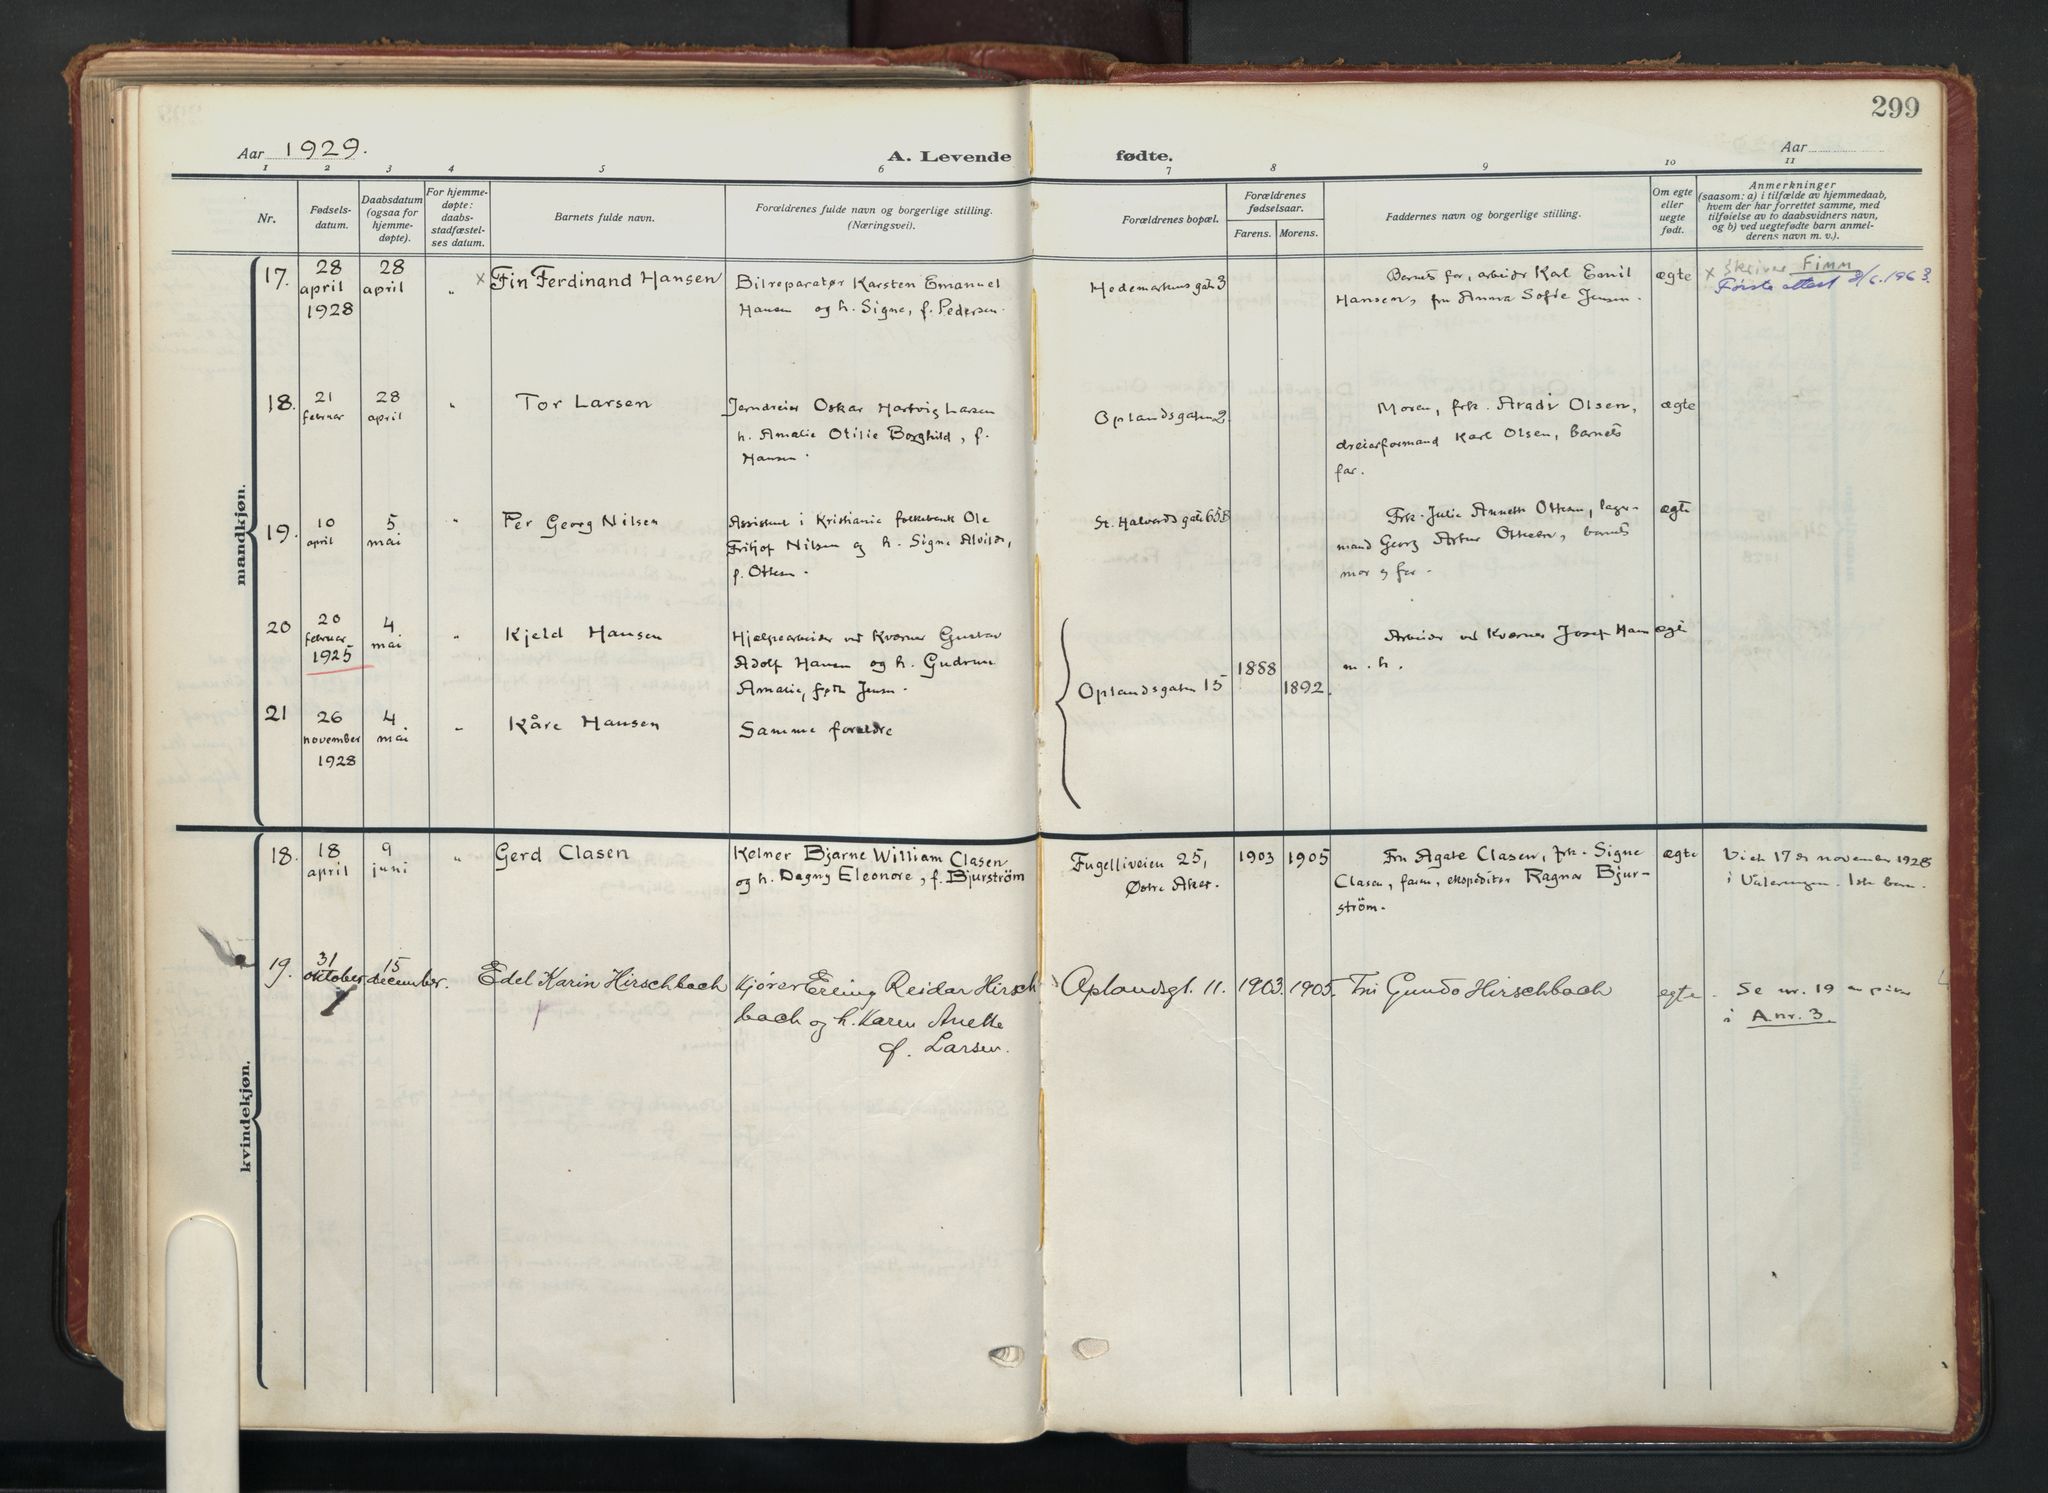 299
Aar 1929.
A. Levende fødte.
Aar
1 2 3 4 5 6 7 8 9 10 11
Nr.
Fødsels-
datum.
Daabsdatum
(ogsaa for
hjemme-
døpte).
For hjemme-
døpte:
daabs-
stadfæstel-
ses datum.
Barnets fulde navn.
Forældrenes fulde navn og borgerlige stilling.
(Næringsvei).
Forældrenes bopæl.
Forældrenes
fødselsaar.
Farens. Morens.
Faddernes navn og borgerlige stilling.
Om egte
eller
uegte
født.
Anmerkninger
(saasom: a) i tilfælde av hjemmedaab,
hvem der har forrettet samme, med
tilføielse av to daabsvidners navn,
og b) ved uegtefødte barn anmel-
derens navn m. v.).
mandkjøn.
17.
28
april
1928
28
april
"
× Fin Ferdinand Hansen
Bilreparatør Karsten Emanuel
Hansen og h. Signe, f. Pedersen.
Hedemarkensgate 3
Barnets far, arbeider Karl Emil
Hansen, fru Anna Sofie Jensen.
ægte
× skriver Finn
Første attest 8/6.1963.
18.
21
februar
28
april
"
Tor Larsen
Jerndreier Oskar Hartvig Larsen
h. Amalie Otilie Borghild, f.
Hansen.
Oplandsgaten 2.
Moren, frk. Aradi Olsen,
dreierformand Karl Olsen, barnets
far.
ægte
19.
10
april
5
mai
"
Per Georg Nilsen
Assistent i Kristiania folkebank Ole
Fritjof Nilsen og h. Signe Alvilde,
f. Ottesen.
St. Halvardsgate 65B
Frk. Julie Annette Ottesen, lager-
mand Georg Artur Ottesen, barnets
mor og far.
ægte
20
20
februar
1925
4
mai
"
Kjeld Hansen
Hjælpearbeider ved Kværner Gustav
Adolf Hansen og h. Gudrun
Amalie, født Jensen.
Oplandsgaten 15
1888
1892.
Arbeider ved Kværner Josef Hansen
m. h.
ægte
21
26
november
1928
4
mai
"
Kåre Hansen
Samme foreldre
kvindekjøn.
18.
18
april
9
juni
"
Gerd Clasen
Kelner Bjarne William Clasen
og h. Dagny Eleonore, f. Bjurström
Fugelliveien 25,
Østre Aker.
1903
1905
Fru Agate Clasen, frk. Signe
Clasen, faren, ekspeditør Ragnar Bjur-
ström.
ægte
Viet 17de november 1928
i Vålerengen. 1ste barn.
19.
31
oktober
15
december.
Edel Karin Hirschbach
Kjører Erling Reidar Hirsch
bach og h. Karen Anette
f. Larsen.
Oplandsgt. 11.
1903.
1905.
Fru Gunda Hirschbach
egte
Se nr. 19 
i A. nr. 3.